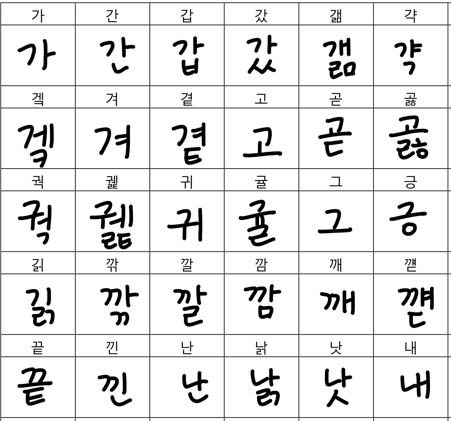 가 간 갑 갔 갦 갹
가 간 갑 갔 갦 갹
겍 겨 곁 고 곧 곯
겍 겨 곁 고 곧 곯
궉 귍 귀 귤 그 긍
궉 귍 귀 귤 그 긍
긹 깎 깔 깜 깨 꺧
긹 깎 깔 깜 깨 꺧
끝 낀 난 낡 낫 내
끝 낀 난 낡 낫 내